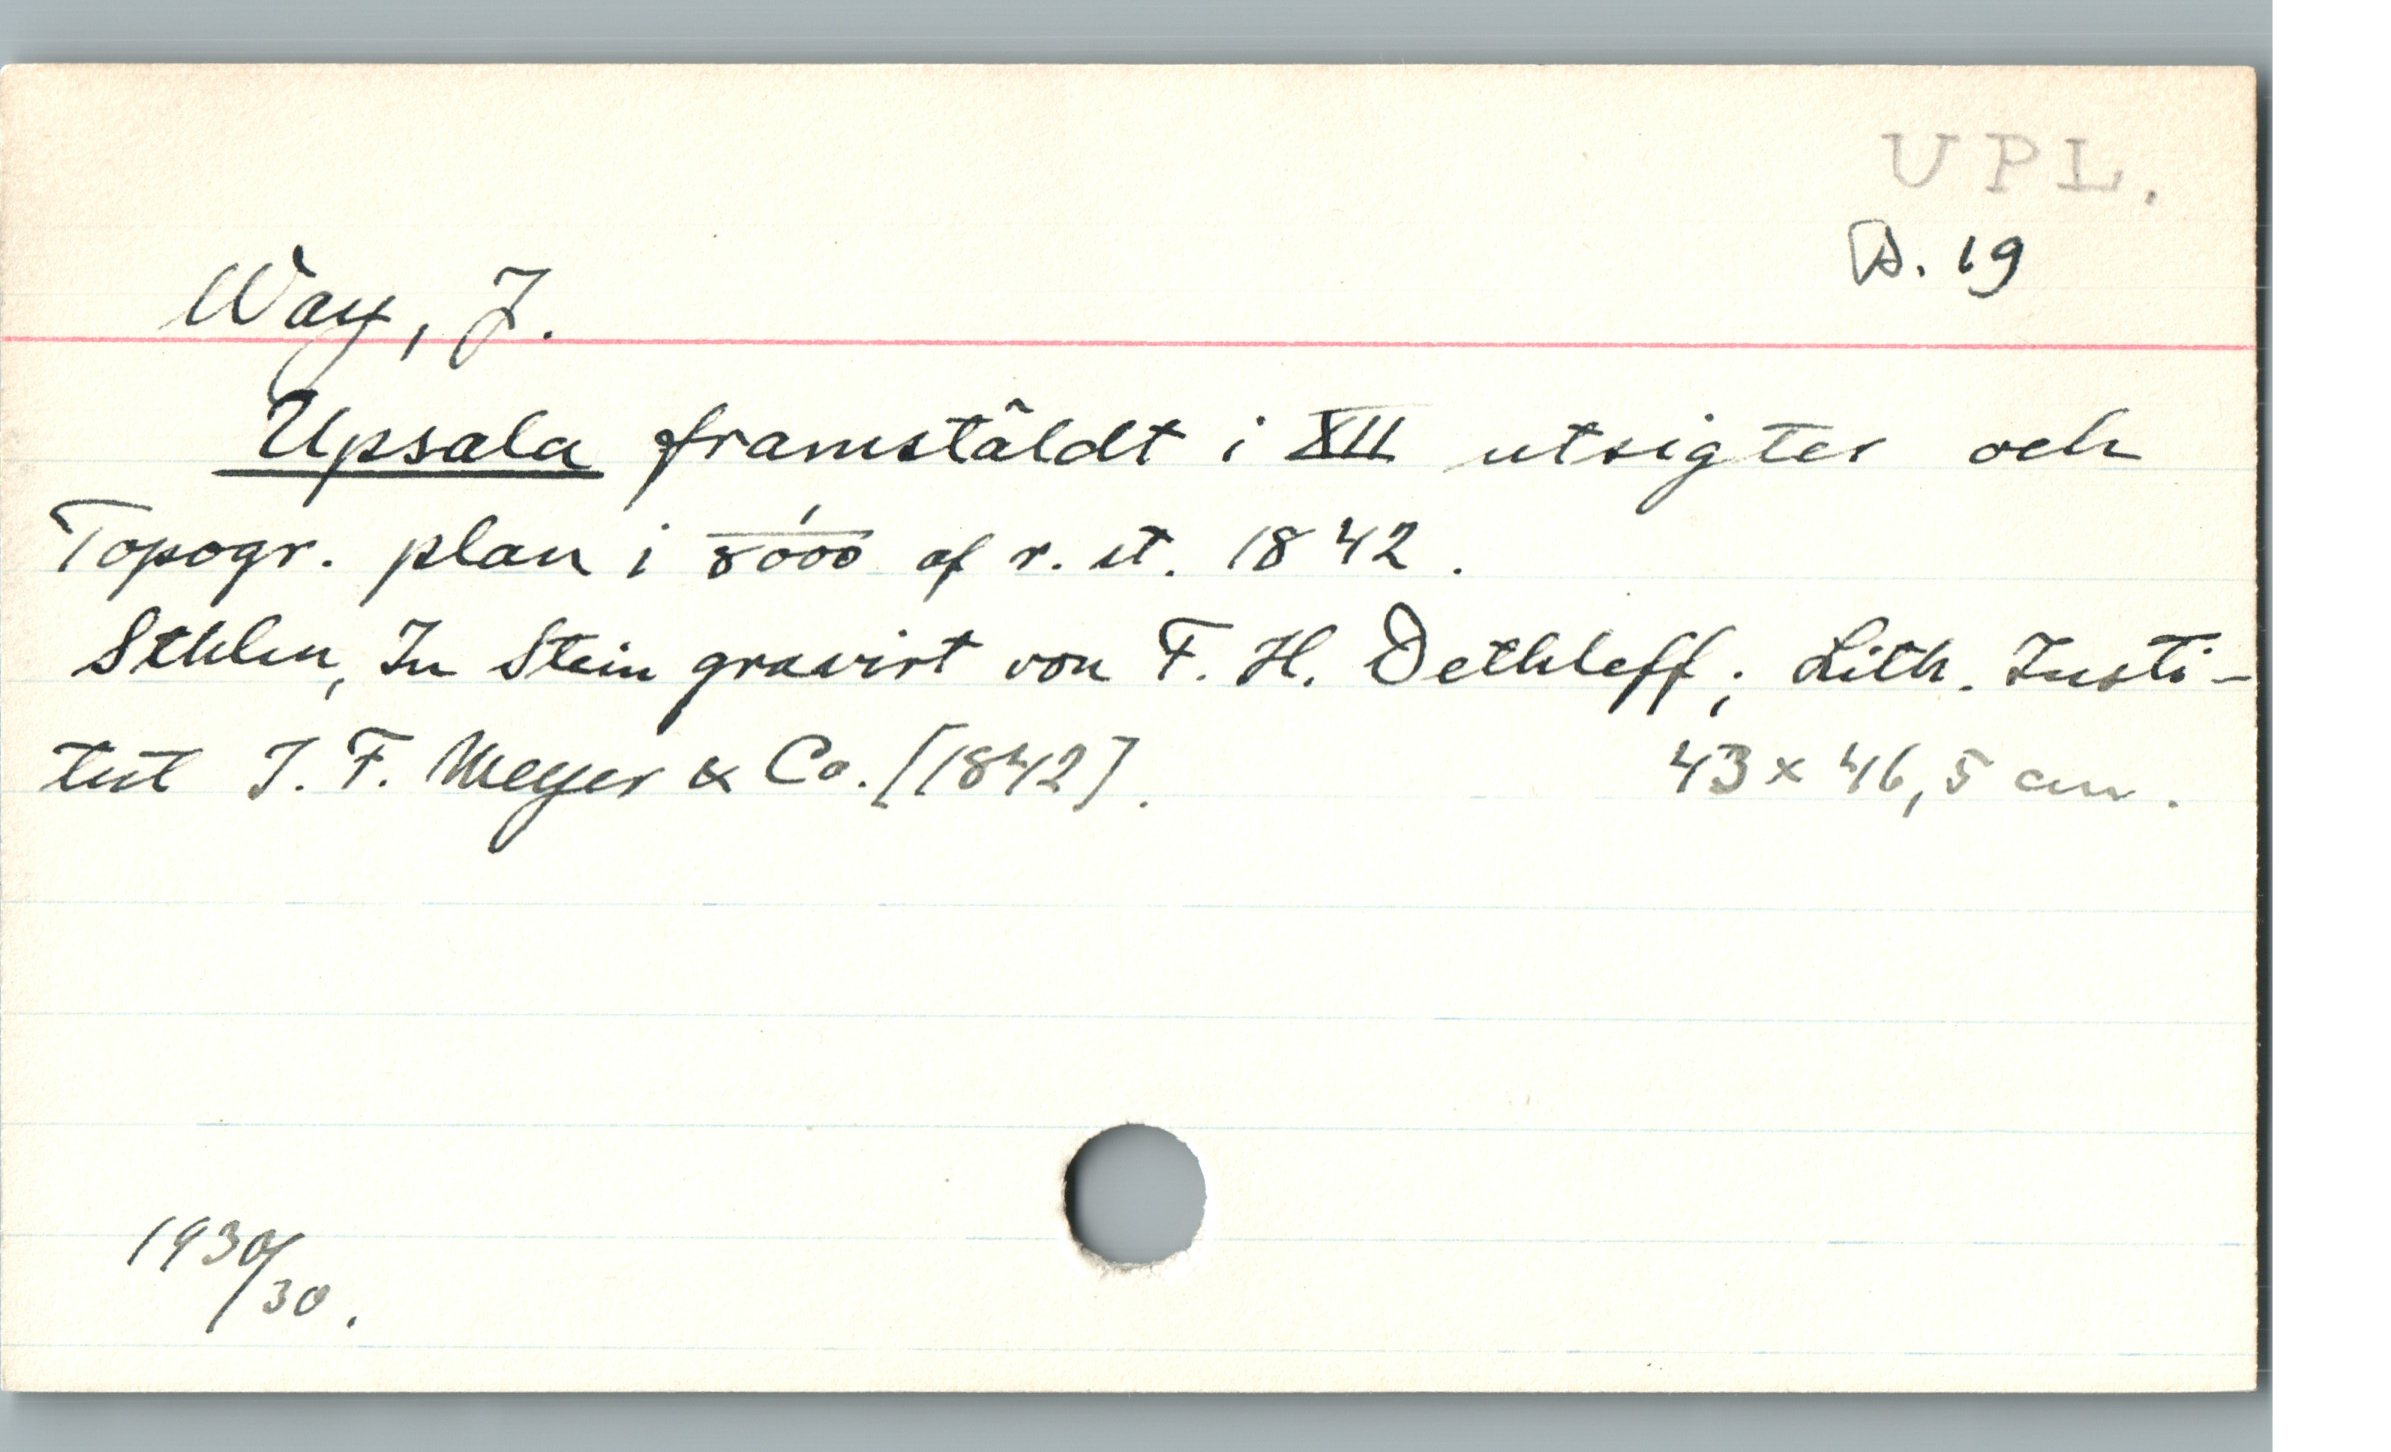 UPL.
B. 19
Way, J.
Upsala framstäldt i XII utsigter och
Topogr. plan i 1/8000 af r. st. 1842.
Sthlm, In Stein gravirt von F. H. Dethleff; Lith. Insti-
tut J. F. Meyer & Co. [1842]. 43 x 46,5 cm.
1930/30.